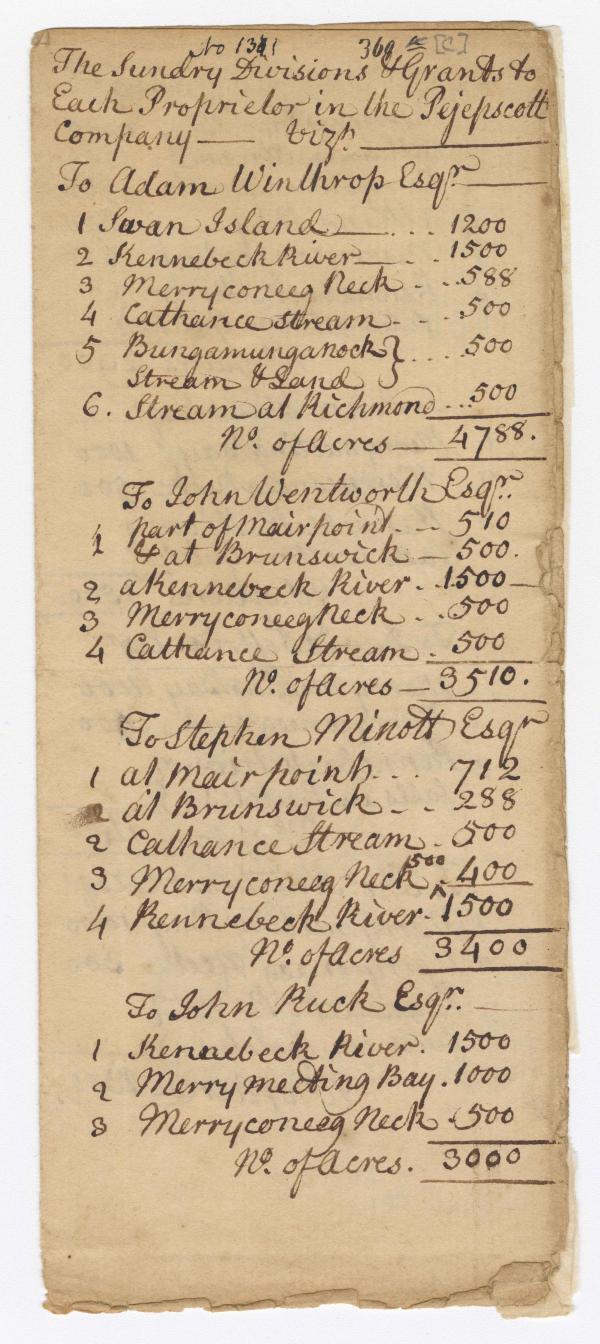 to 1381 369 [C]
The Sundry Divisions & Grants to
Each Proprietor in the Pejepscott
Company — Vizt.
To Adam Winthrop Esqr.
1 Swan Island . . . 1200
2 Kennebeck River . . 1500
3 Merryconeeg Neck . . 588
4 Cathance Stream . . 500
5 Bungamunganock } . . . 500
Stream & Land
6. Stream at Richmond . . . 500
No. of Acres — 4788.
To John Wentworth Esqr.
1 part of Mairpoint . . 510
& at Brunswick — 500.
2 a Kennebeck River . . 1500
3 Merryconeeg Neck . . 500
4 Cathance Stream . 500
No. of Acres — 3510.
To Stephen Minott Esqr
1 at Mairpoint . . . 712
at Brunswick . . 288
2 Cathance Stream . 500
3 Merryconeeg Neck 500 400
4 Kennebeck River . 1500
No. of Acres 3400
To John Ruck Esqr.
1 Kennebeck River. 1500
2 Merrymeeting Bay . 1000
3 Merryconeeg Neck . 500
No. of Acres. 3000